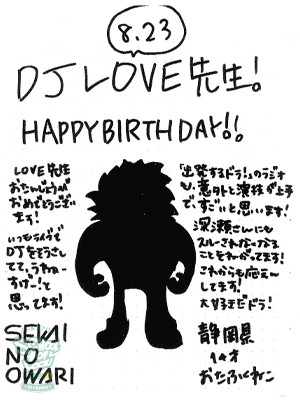 8.23
DJ LOVE先生!
HAPPY BIRTHDAY!!
LOVE先生
おたんじょうび
おめでとうござい
ます!
いつもライブで
DJをそうさし
てて、うわぁー
すげー!と
思ってます!
SEKAI
NO
OWARI
「出発するドラ!」のラジオ
も、意外と演技が上手
で、すごいと思います!
深瀬さんにも
スルーされなくなる
ことをねがってます!
これからも応えん
してます!
大好きだドラ!
静岡県
14才
おたふくねこ